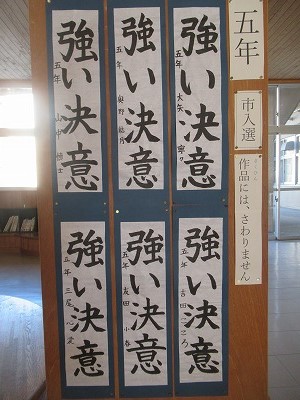 五年
市入選
作品には、さわりません
強い決意
五年
強い決意
五年 奥野
強い決意
五年 山中
強い決意
五年 吉田こころ
強い決意
五年 太田小春
強い決意
五年 三尾心